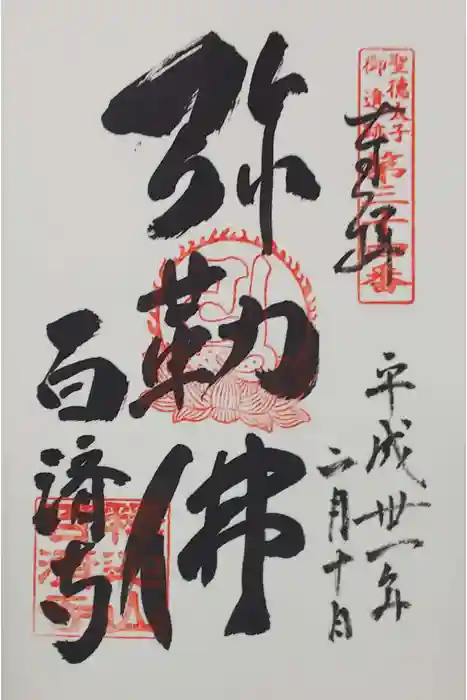 聖徳太子
御遺跡
第三十四番
奉拝
平成丗一年
二月十日
弥勒佛
百済寺